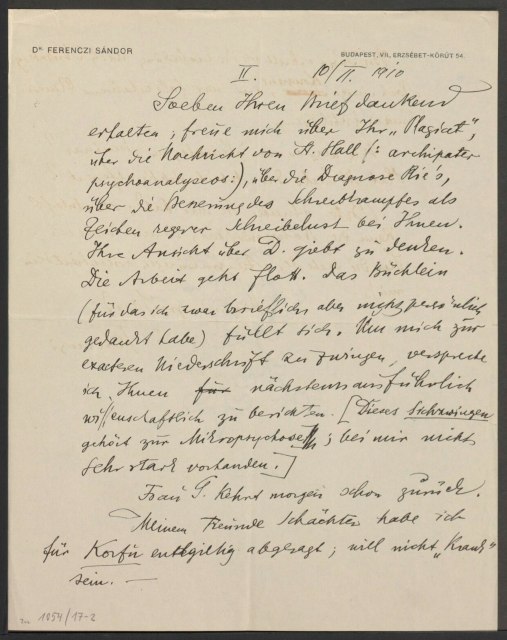 Dr. FERENCZI SÁNDOR
BUDAPEST, VII., ERZSÉBET-KÖRÚT 54.
II. 10/II. 1910
Soeben Ihren Brief dankend
erhalten; freue mich über Ihr „Plagiat",
über die Nachricht von St. Hall (: archipater
psychoanalyseos:), über die Diagnose Rie's,
über die des Schreibkrampfes als
Zeichen regerer Schreibelust bei Ihnen.
Ihre Ansicht über D. giebt zu denken.
Die Arbeit geht flott. Das Büchlein
(für das ich zwar brieflich aber nicht persönlich
gedankt habe) füllt sich. Um mich zur
exacteren Niederschrift zu zwingen, verspreche
ich Ihnen für nächstens ausführlich
wissenschaftlich zu berichten. [Dieses Sichzwingen
gehört zur Mikropsychose; bei mir nicht
sehr stark vorhanden.]
Frau G. kehrt morgen schon zurück.
Meinem Freunde Schächter habe ich
für Korfu entgiltig abgesagt; will nicht „Krank"
sein. —
1054/17-2